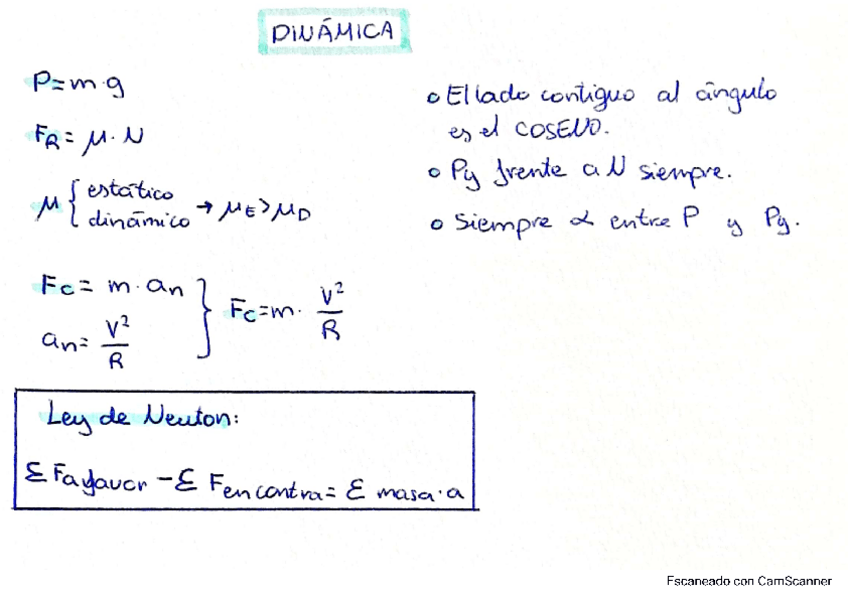 DINÁMICA
P=m·g
F_R = μ·N
μ { estático
dinámico → μ_E > μ_D
F_c = m·a_n
a_n = V²/R } F_c = m· V²/R
Ley de Newton:
Σ F a favor - Σ F en contra = Σ masa·a
o El lado contiguo al ángulo
es el COSENO.
o Py frente a N siempre.
o Siempre α entre P y Py.
Escaneado con CamScanner